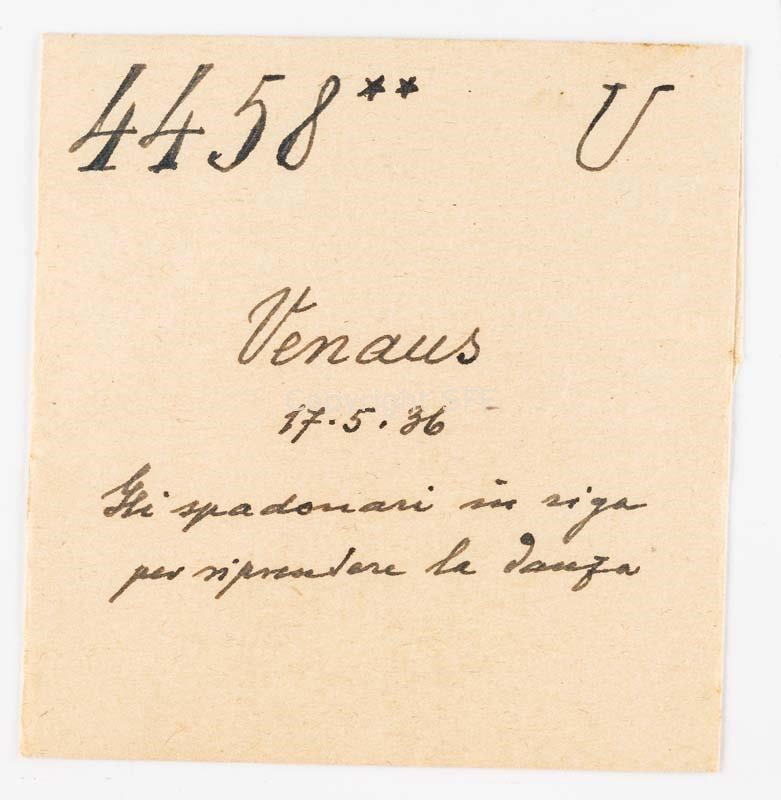 4458** U
Venaus
17.5.36
Gli spadonari in riga
per riprendere la danza